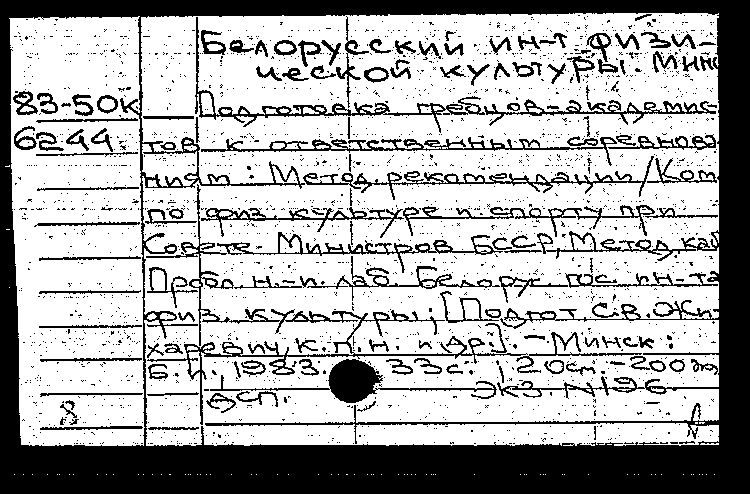 Белорусский ин-т физи-
ческой культуры. Минс
83-50к Подготовка гребцов-академис-
6244 тов к ответственным соревнова
ниям: Метод. рекомендации / Ком.
по физ. культуре и спорту при
Совете Министров БССР; Метод. каб
Пробл. н.-и. лаб. Белорус. гос. ин-та
физ. культуры; [Подгот. С.В. Жи-
харевич, к.п.н. и др.]. - Минск:
Б.и., 1983. 33с.; 20см. - 200 экз
ДСП. Экз. N196.
8